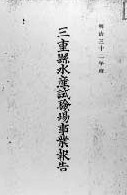 明治三十一年度
三重縣水産試驗場事業報告